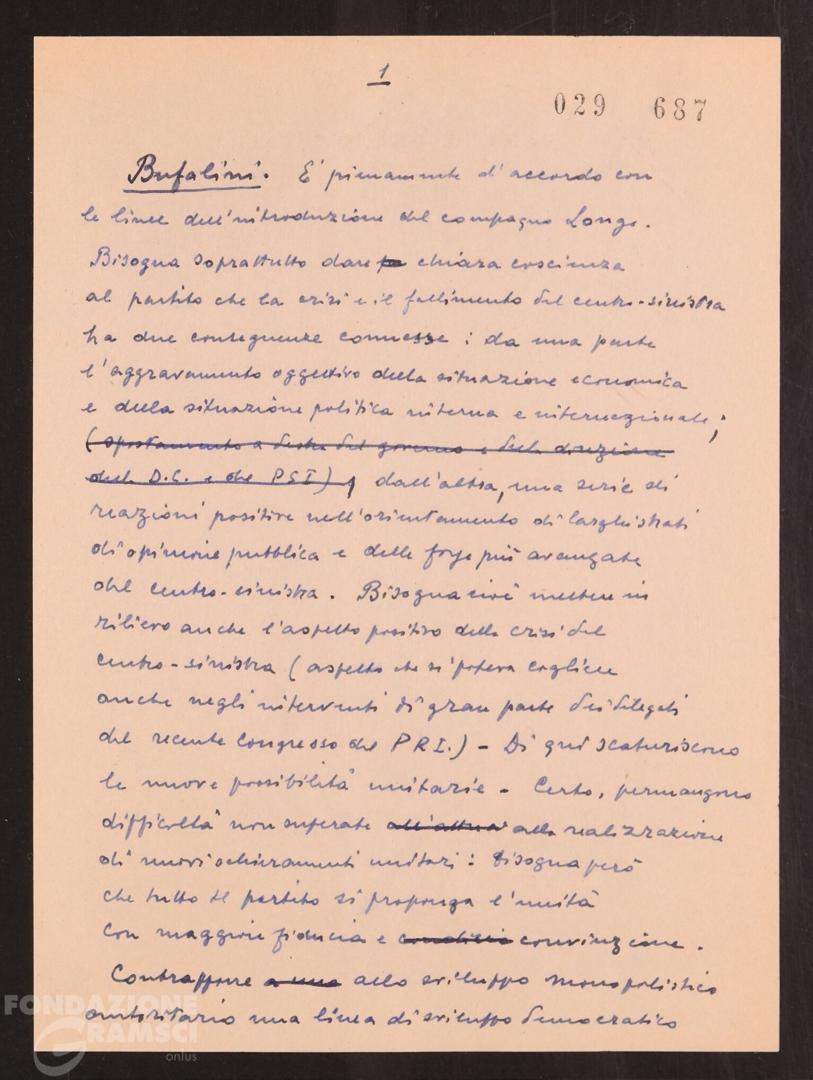 1
029 687
Bufalini. E' pienamente d'accordo con
le linee dell'introduzione del compagno Longo.
Bisogna soprattutto dare chiara coscienza
al partito che la crisi e il fallimento del centro-sinistra
ha due conseguenze connesse : da una parte
l'aggravamento oggettivo della situazione economica
e della situazione politica interna e internazionale ;
(spostamento a destra del governo e della direzione
della D.C. e del PSI) , dall'altra, una serie di
reazioni positive nell'orientamento di larghi strati
di opinione pubblica e delle forze più avanzate
del centro-sinistra. Bisogna cioè mettere in
rilievo anche l'aspetto positivo della crisi del
centro-sinistra (aspetto che si poteva cogliere
anche negli interventi di gran parte dei delegati
del recente Congresso del PRI.) - Di qui scaturiscono
le nuove possibilità unitarie - Certo, permangono
difficoltà non superate alla realizzazione
di nuovi schieramenti unitari : bisogna però
che tutto il partito si proponga l'unità
con maggiore fiducia e convinzione.
Contrapporre a una allo sviluppo monopolistico
autoritario una linea di sviluppo democratico
FONDAZIONE
GRAMSCI
onlus